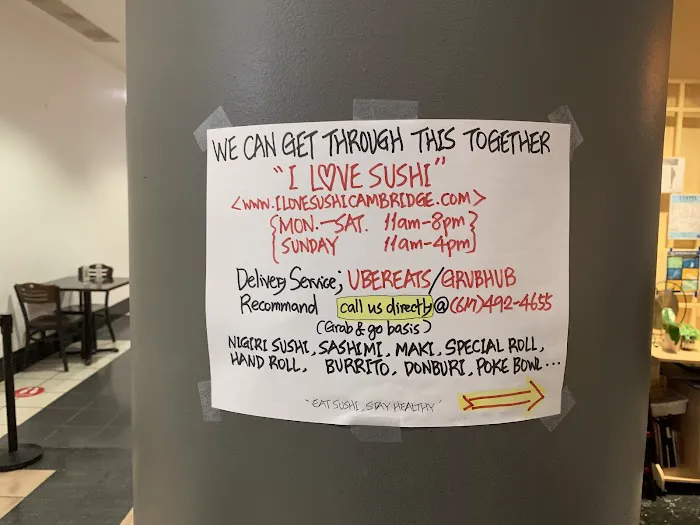 WE CAN GET THROUGH THIS TOGETHER
"I L♡VE SUSHI"
<WWW.ILOVESUSHICAMBRIDGE.COM>
{MON.-SAT. 11am-8pm}
{SUNDAY 11am-4pm}
Delivery Service; UBEREATS/GRUBHUB
Recommand call us directly @(617)492-4655
(Grab & go basis)
NIGIRI SUSHI, SASHIMI, MAKI, SPECIAL ROLL,
HAND ROLL, BURRITO, DONBURI, POKE BOWL...
"EAT SUSHI, STAY HEALTHY"